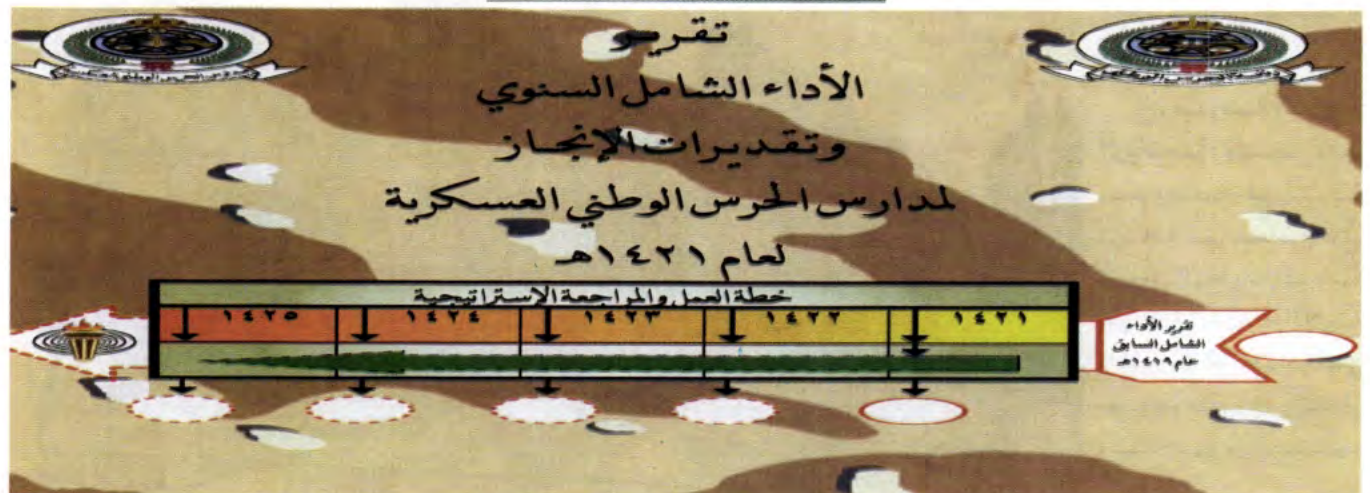 تقرير
الأداء الشامل السنوي
وتقديرات الإنجاز
لمدارس الحرس الوطني العسكرية
لعام ١٤٢١هـ
خطة العمل والمراجعة الإستراتيجية
١٤٢١ ١٤٢٢ ١٤٢٣ ١٤٢٤ ١٤٢٥
تقرير الأداء
الشامل السابق
عام ١٤١٩هـ